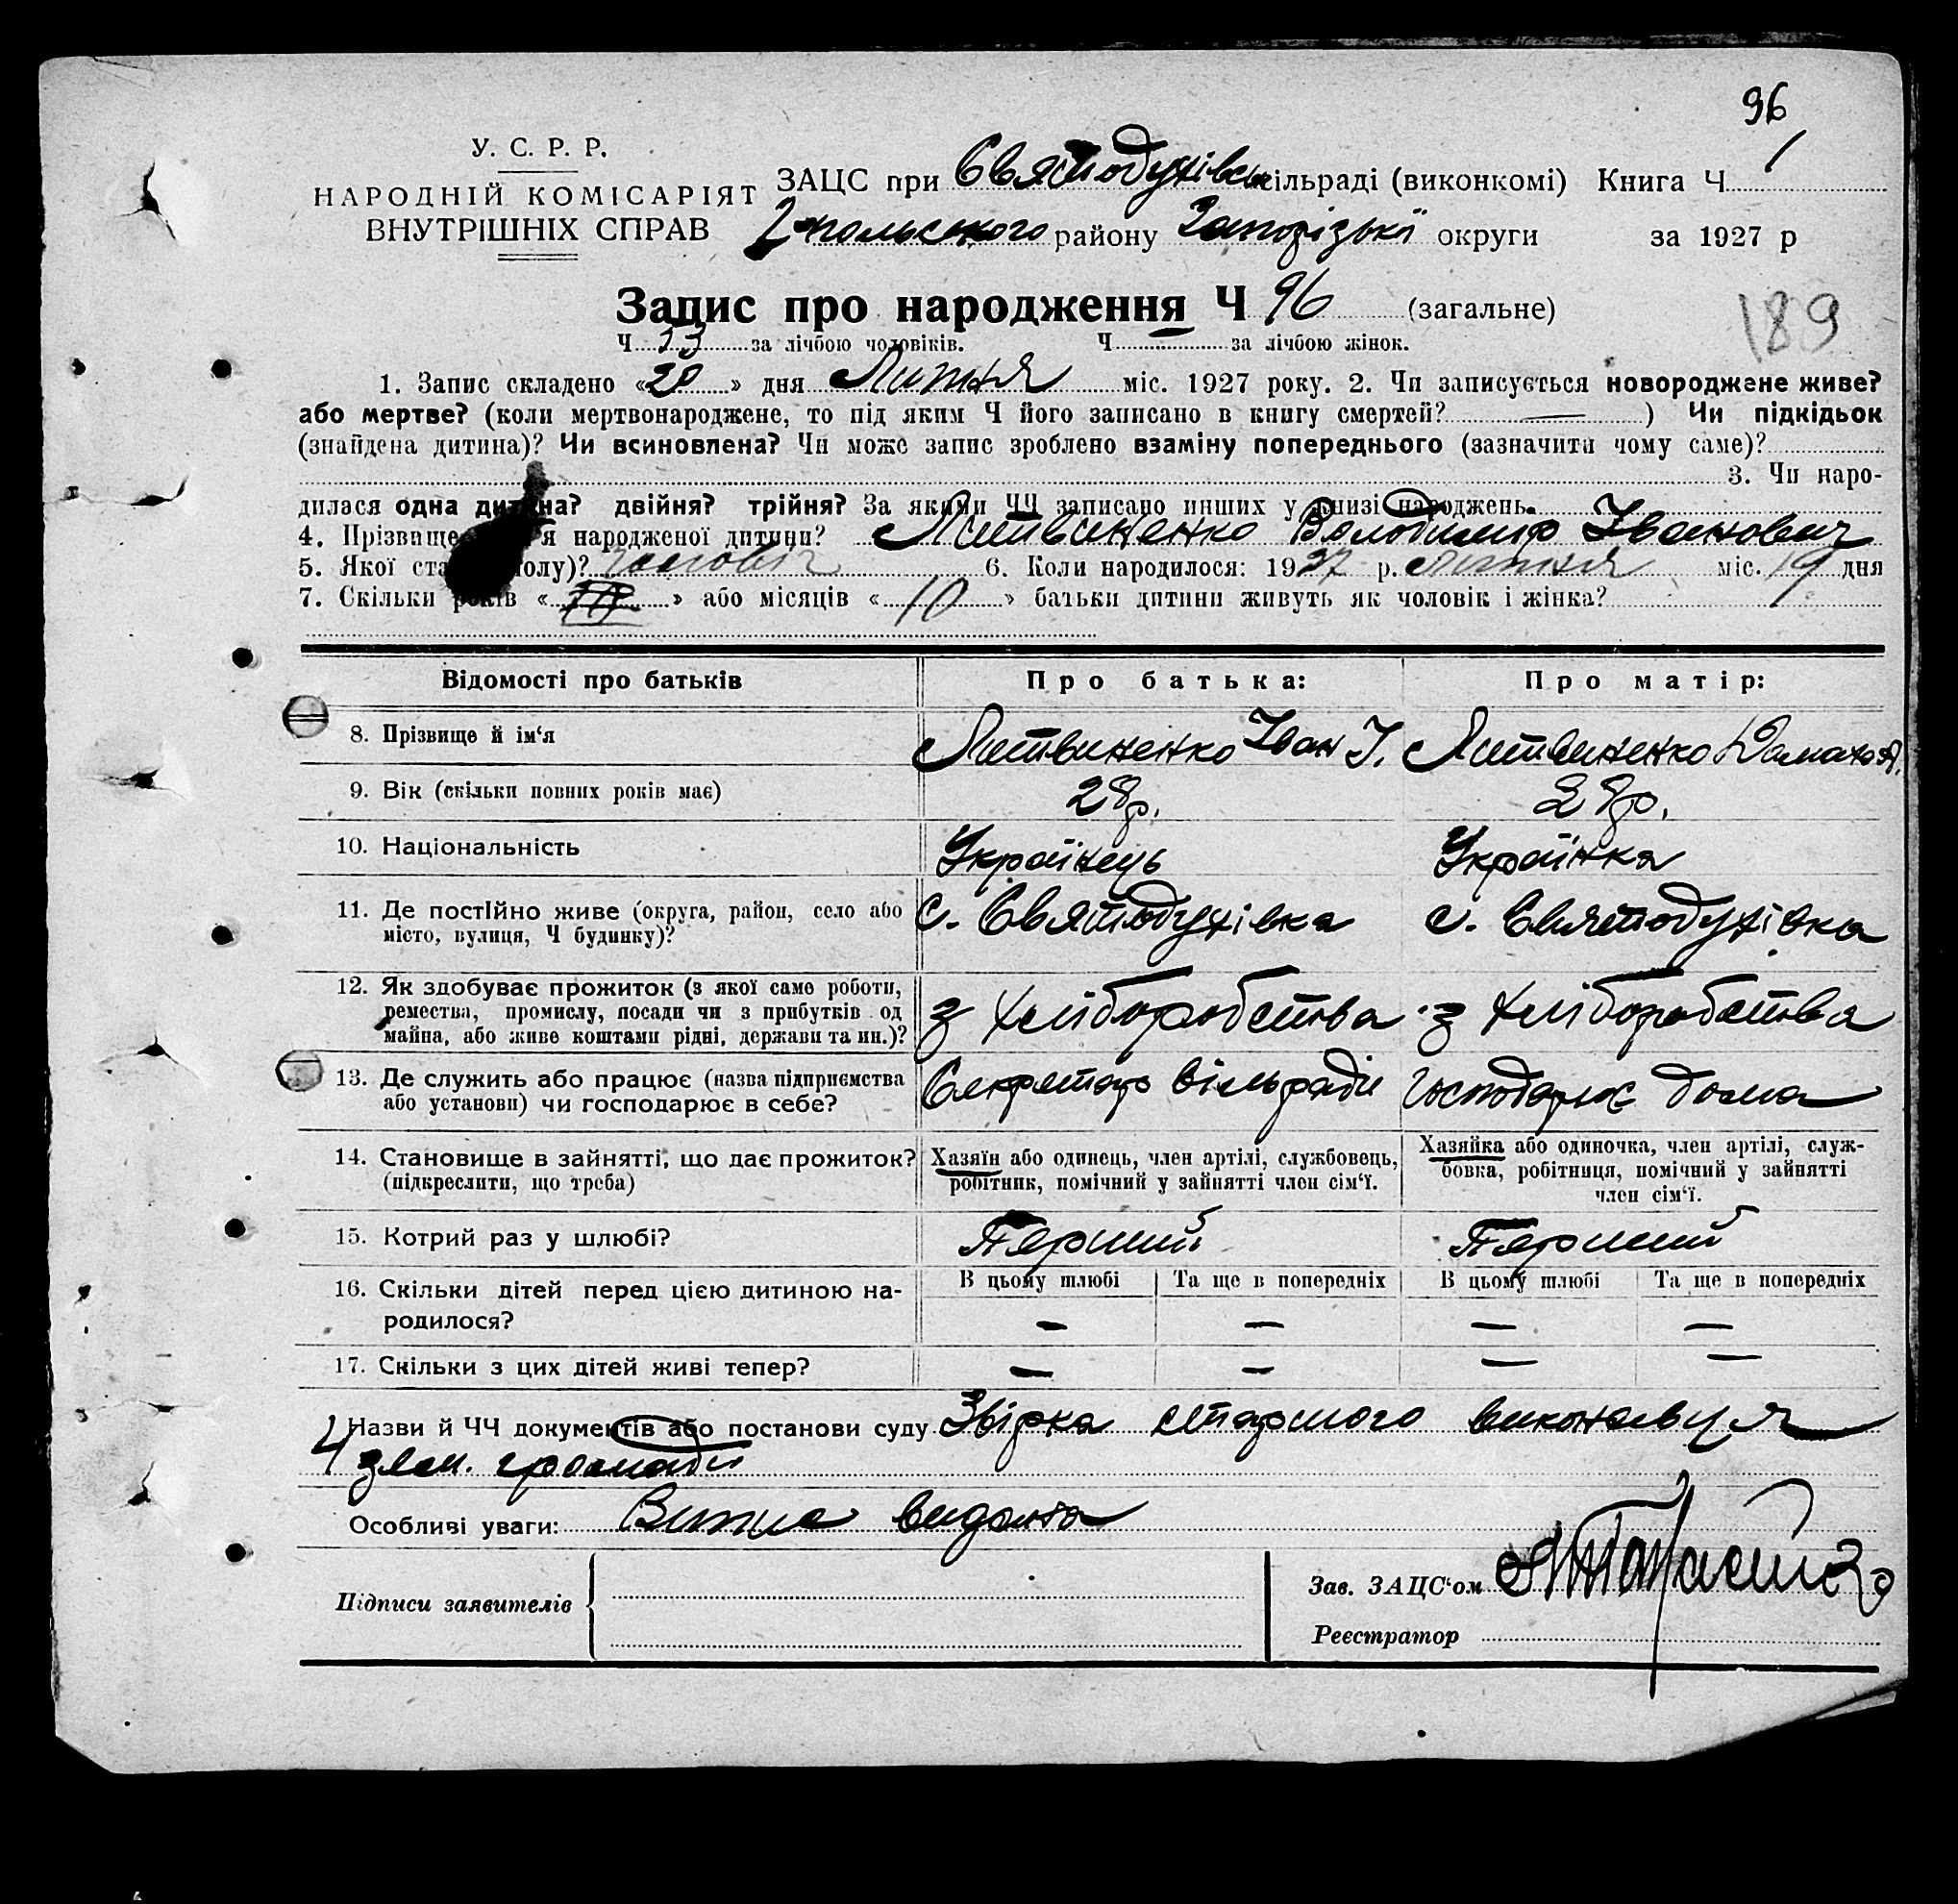 96
У. С. Р. Р.
НАРОДНІЙ КОМІСАРІЯТ
ВНУТРІШНІХ СПРАВ
ЗАЦС при Святодухівськ сільраді (виконкомі) Книга Ч 1
району Запорізької округи за 1927 р
Запис про народження Ч 96 (загальне)
189
Ч 53 за лічбою чоловіків. Ч — за лічбою жінок.
1. Запис складено «20» дня Липня міс. 1927 року. 2. Чи записується новороджене живе?
або мертве? (коли мертвонароджене, то під яким Ч його записано в книгу смертей? — ) Чи підкідьок
(знайдена дитина)? Чи всиновлена? Чи може запис зроблено взаміну попереднього (зазначити чому саме)?
3. Чи наро-
дилася одна дитина? двійня? трійня? За якими ЧЧ записано инших у книзі народжень.
4. Прізвище я народженої дитини? Литвиненко Володимир Іванович
5. Якої ста олу)? чоловіч 6. Коли народилося: 1927 р. липня міс. 19 дня
7. Скільки років « » або місяців «10» батьки дитини живуть як чоловік і жінка?
Відомості про батьків Про батька: Про матір:
8. Прізвище й ім'я Литвиненко Іван І. Литвиненко Домаха
9. Вік (скільки повних років має) 28 р. 28 р.
10. Національність Українець Українка
11. Де постійно живе (округа, район, село або
місто, вулиця, Ч будинку)? с. Святодухівка с. Святодухівка
12. Як здобуває прожиток (з якої саме роботи,
ремества, промислу, посади чи з прибутків од
майна, або живе коштами рідні, держави та ин.)? з хліборобства з хліборобства
13. Де служить або працює (назва підприємства
або установи) чи господарює в себе? Секретар сільради господарює дома
14. Становище в зайнятті, що дає прожиток?
(підкреслити, що треба)
Хазяїн або одинець, член артілі, службовець,
робітник, помічний у зайнятті член сім'ї.
Хазяйка або одиночка, член артілі, служ-
бовка, робітниця, помічний у зайнятті
член сім'ї.
15. Котрий раз у шлюбі? Перший Перший
16. Скільки дітей перед цією дитиною на-
родилося?
В цьому шлюбі Та ще в попередніх В цьому шлюбі Та ще в попередніх
— — — —
17. Скільки з цих дітей живі тепер? — — — —
Назви й ЧЧ документів або постанови суду Звірка старшого виконавця
4 зем. громади
Особливі уваги: Випис видано
Підписи заявителів
Зав. ЗАЦС'ом
Реєстратор